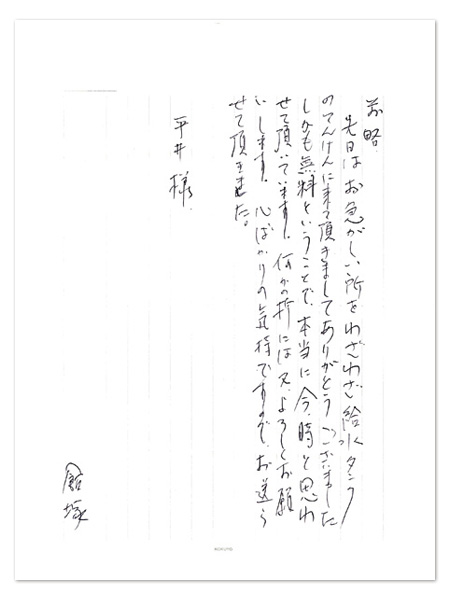 前略
先日はお急がしい所をわざわざ給水タンク
のてんけんに来て頂きましてありがとうございました
しかも無料ということで、本当に今時と思わ
せて頂いています。何かの折には又、よろしくお願
いします。心ばかりの気持ですので、お送りさ
せて頂きました。
平井様
塚
KOKUYO